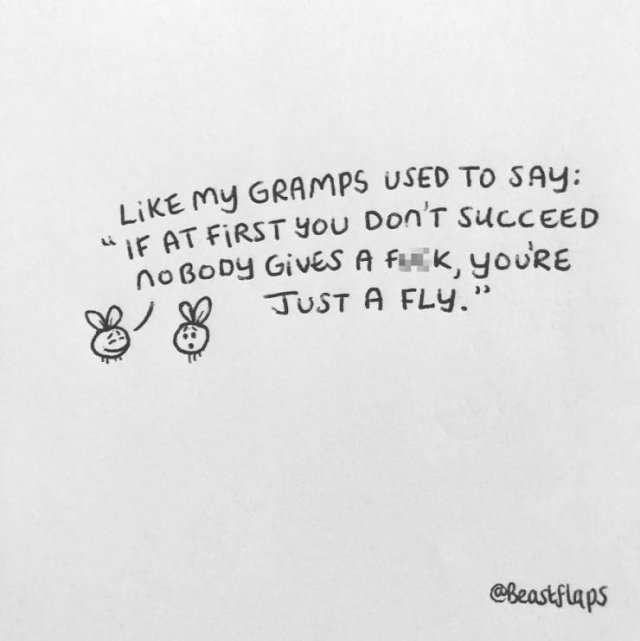 LiKE my GRAMPS USED TO SAY:
"IF AT FiRST you Don'T SUCCEED
noBoDy GiVES A
, you'RE
JUST A FLy."
@Beastflaps